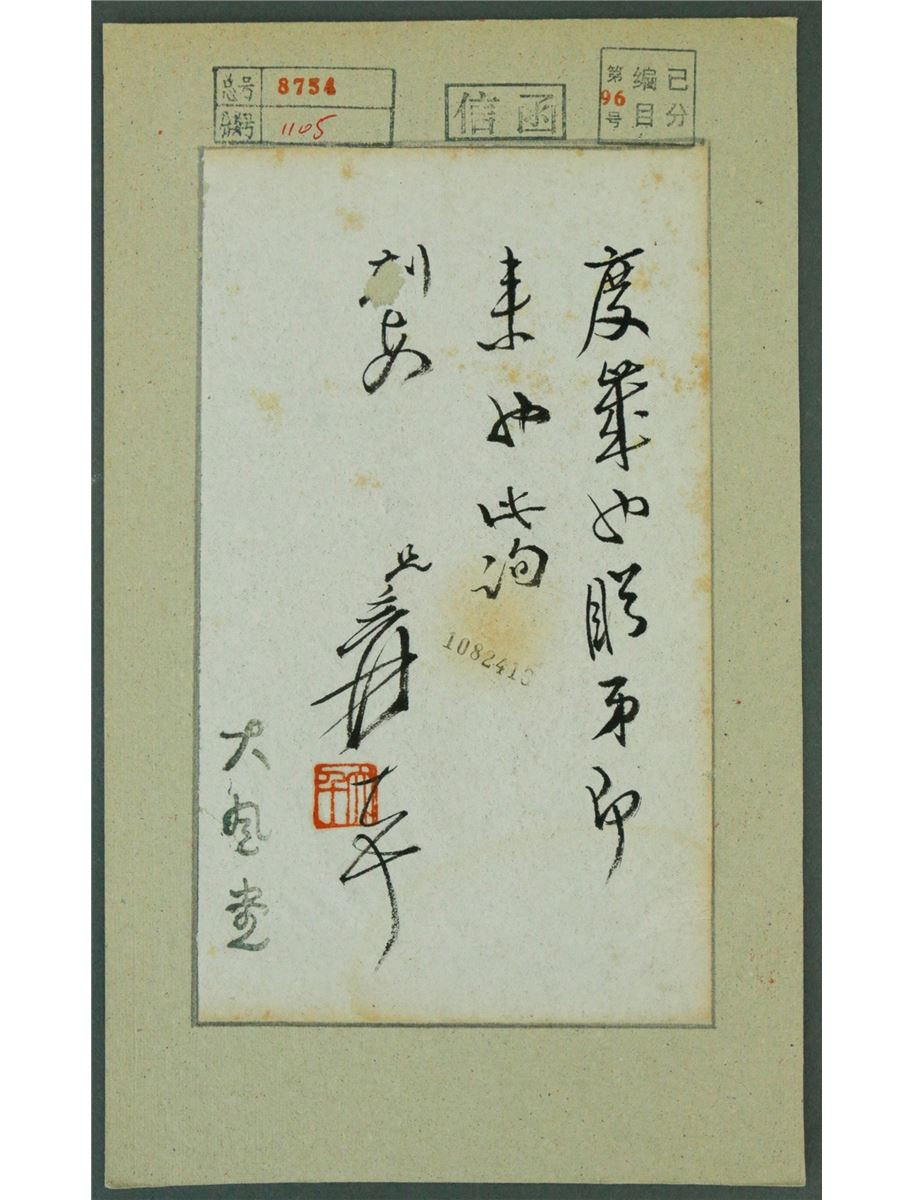 总号 8754
分类号 1105
信函
已分
编目
第96号
度歲也盼弟即
来也此询
刻安
兄爰大千
大千
大风堂